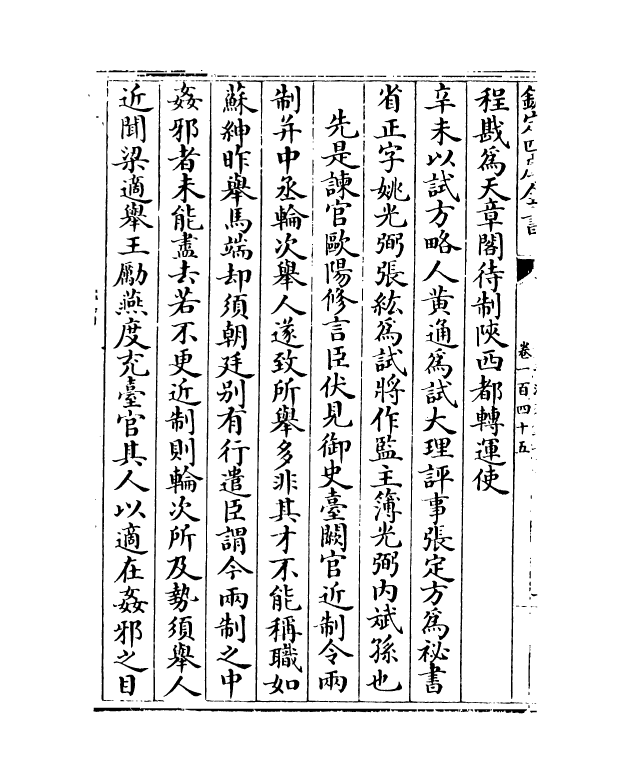 欽定四庫全書
卷一百四十五
程戡爲天章閣待制陝西都轉運使
辛未以試方略人黄通爲試大理評事張定方爲祕書
省正字姚光弼張紘爲試將作監主簿光弼内斌孫也
先是諫官歐陽修言臣伏見御史臺闕官近制令兩
制并中丞輪次舉人遂致所舉多非其才不能稱職如
蘇紳昨舉馬端却須朝廷别有行遣臣謂今兩制之中
姦邪者未能盡去若不更近制則輪次所及勢須舉人
近聞梁適舉王勵燕度充臺官其人以適在姦邪之目